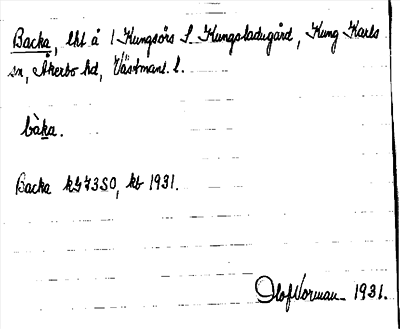 Backa, lht å 1 Kungsörs S. Kungsladugård, Kung Karls
sn, Åkerbo hd, Västmanl. l.
bàka.
Backa kG73SO, kb 1931.
Olof Norman 1931.